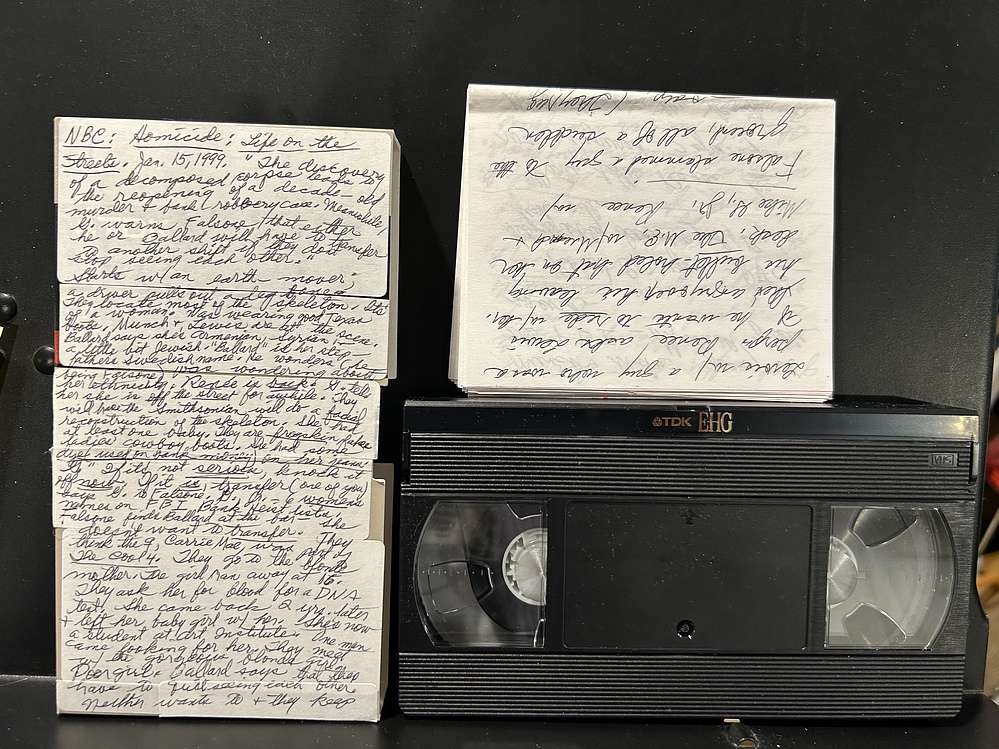 NBC: Homicide: Life on the
Streets. Jan. 15, 1999. "The discovery
of a decomposed corpse leads to
the reopening of a decade old
murder & bank robbery case. Meanwhile,
G. warns Falsone that either
he or Ballard will have to transfer
to another shift if they do not
stop seeing each other."
Starts w/ an earth mover;
a driver pulls out a leg bone.
They locate most of the skeleton. It's
of a woman. Was wearing good Texan
boots. Munch & Lewis are at the scene.
Ballard says she's Armenian, Syrian &
a little bit Jewish. Ballard is her step-
father's Swedish name. He wonders
being Falsone) was wondering about
her ethnicity. Renee is back. G. tells
her she is off the street for awhile. They
will have the Smithsonian will do a facial
reconstruction of the skeleton. She had
at least one baby. They are
ladies cowboy boots. She had some
dye used on bank money on her
G: "If it's not serious, knock it
off now. If it is, transfer (one of you)
says G. to Falsone. 6 womens
names on F.B.I. Bank Heist lists.
Falsone finds Ballard at the bar. She
doesn't want to transfer. They
think the g, Carrie Mae, was
They go to the blonde's
mother. The girl ran away at 16.
They ask her for blood for a DNA
test. She came back 2 yrs. later
& left her baby girl w/ her. She's now
a student at Art Institute. One man
came looking for her. They meet
w/ the gorgeous blonde girl.
Poor girl. Ballard says that they
have to quit seeing each other.
Neither wants to & they keep
Lewis w/ a guy who was a
perp. Renee asks Lewis
if he wants to ride w/ her.
She's angry over his leaving
his bullet holed hat on her
desk. The M.E. w/ Munch &
Mike G., Jr. Renee w/
Falsone slammed a guy to the
ground, all of a sudden
say, (They say
TDK EHG
VHS